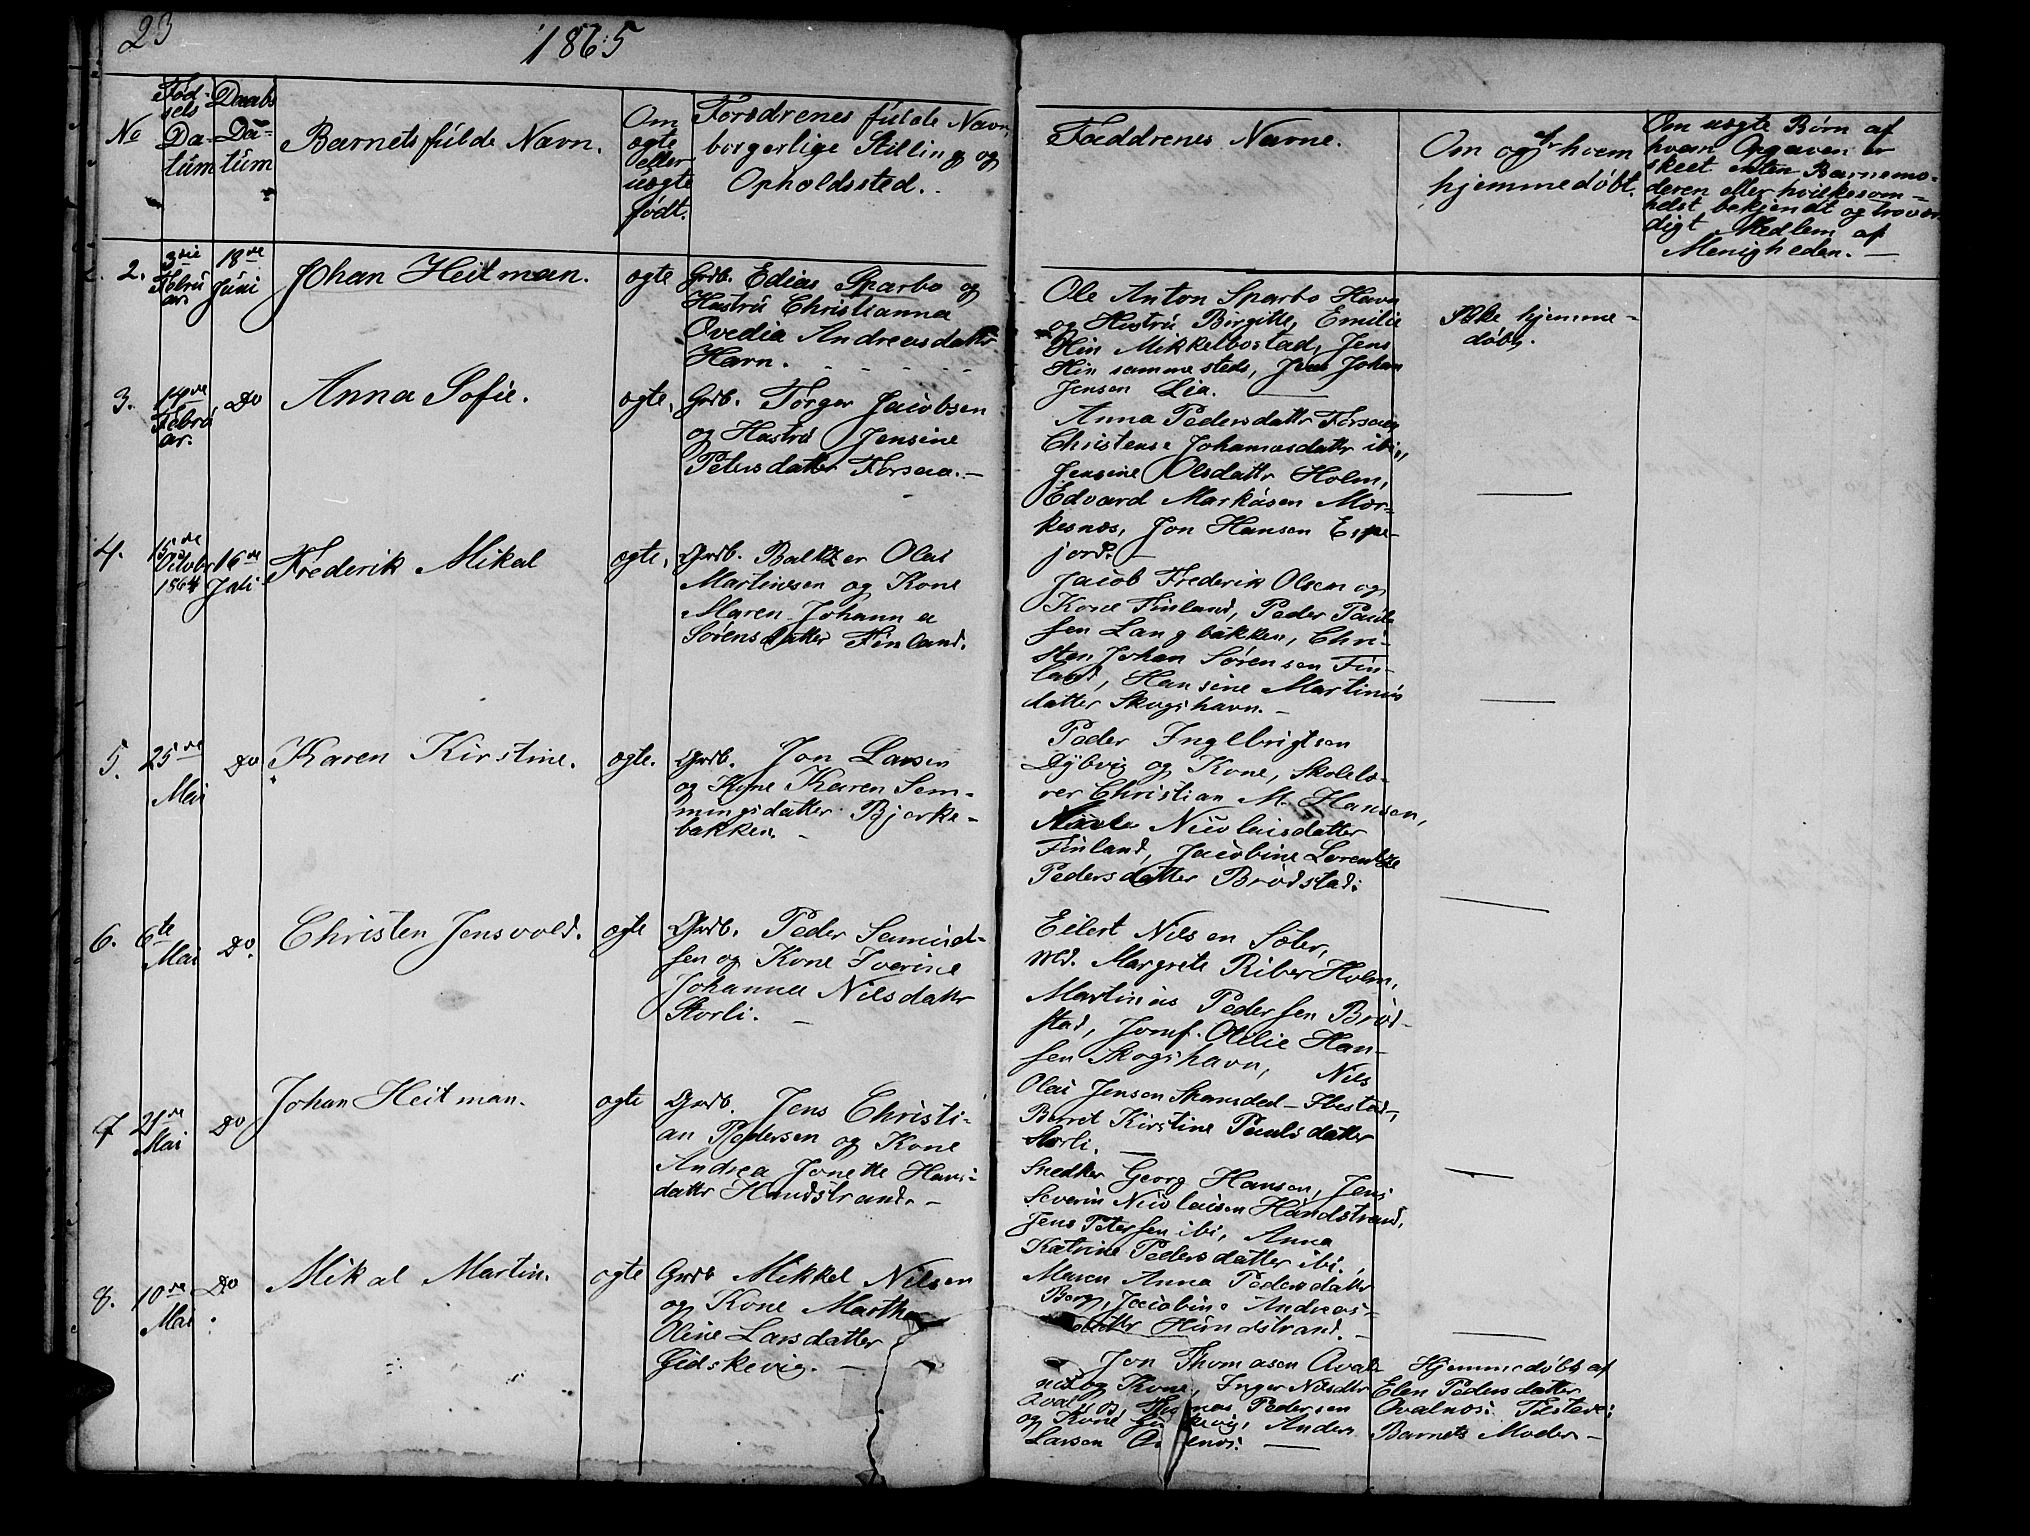 23
1865
No
Fød-
sels
Da-
tum
Daabs
Da-
tum
Barnets fulde Navn.
Om
ægte
eller
uægte
født.
Forædrenes fulde Navn
borgerlige Stilling og
Opholdssted.
Faddrenes Navne.
Om og af hvem
hjemmedøbt.
Om uægte Børn af
hvem Opgaven er
skeet enten Barnemo-
deren eller hvilkesom-
helst bekjendt og trovær-
digt Medlem af
Menigheden. —
2.
3die
Febru
ar.
18de
Juni
Johan Heitman.
ægte
Grdb. Edias Sparbo og
Hustru Christianna
Ovedia Andreasdattr
Havn.
Ole Anton Sparbo Havn
og Hustru Birgitte, Emilie
Hin Mikkelbostad, Jens
Hin sammesteds, Johan
Jensen Lia.
Ikke hjemme-
døbt.
3.
14de
Febru
ar.
Do
Anna Sofie.
ægte,
Grdb. Torger Jacobsen
og Hustru Jensine
Petersdatter Forsaa. —
Anna Pedersdattr Forsaa,
Christense Johannesdattr ibi,
Jensine Olsdattr Holm,
Edvard Markusen Mor-
kesnæs, Jon Hansen Espe-
jord. —
4.
15de
Octobr
1864
16de
Juli
Frederik Mikal
ægte,
Grdb. Baltzer Olai
Martinesen og Kone
Maren Johanna
Sørensdatter Finland.
Jacob Frederik Olsen og
Kone Finland, Peder Paul-
sen Langbakken, Chri-
sten Johan Sørensen Fin-
land, Hansine Martinus
datter Skogshavn. —
5.
25de
Mai
Do
Karen Kirstine.
ægte.
Grdb. Jon Larsen
og Kone Karen Sem-
mingsdatter Bjerke-
bakken. —
Peder Ingebrigtsen
Dybvig og Kone, Skolelæ-
rer Christian M. Hansen,
Nicolaisdatter
Finland, Jacobine Lorentze
Pedersdatter Brødstad.
6.
6te
Mai
Do.
Christen Jensvold.
ægte
Grdb. Peder Samuel-
sen og Kone Iverine
Johanna Nilsdattr
Storli. —
Eilert Nilsen Sæter,
Md. Margrete Riber Holm,
Martinus Pedersen Brød-
stad, Jomf. Otilie Han-
sen Skogshavn, Nils
Olai Jensen Skarsded - Ibestad,
Berrit Kirstine Paulsdatter
Storli. —
7
21de
Mai
Do
Johan Heitman.
ægte
Grdb. Jens Christi-
an Pedersen og Kone
Andrea Jonette Hans-
dattr Hundstrand. —
Snedker Georg Hansen, Jens
Severin Nicolaisen Hundstrand,
Jens Petersen ibi, Anna
Katrine Pedersdatter ibi,
Maren Anna Pedersdattr
Berg, Jacobine Andreas-
dattr Hundstrand. —
8.
10de
Mai
Do
Mikal Martin.
ægte
Grdb Mikkel Nilsen
og Kone Martha
Oline Larsdatter
Gidskevig. —
Jon Thomasen Aval-
nes og Kone, Inger Nilsdtr
Thomas Pedersen
og Kone Anders
Larsen
Hjemmedøbt af
Elen Pedersdatter
Avalnæs. Tilstede:
Barnets Moder —